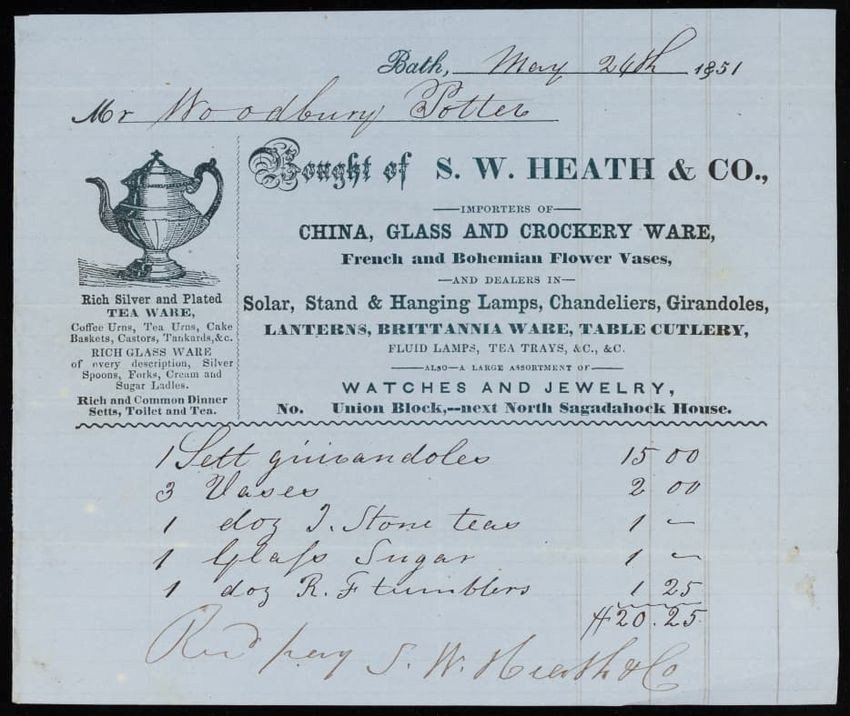 Bath, May 24th 1851
Mr Woodbury Potter
Bought of S. W. HEATH & CO.,
IMPORTERS OF
CHINA, GLASS AND CROCKERY WARE,
French and Bohemian Flower Vases,
—AND DEALERS IN—
Solar, Stand & Hanging Lamps, Chandeliers, Girandoles,
LANTERNS, BRITTANNIA WARE, TABLE CUTLERY,
FLUID LAMPS, TEA TRAYS, &C., &C.
ALSO—A LARGE ASSORTMENT OF
WATCHES AND JEWELRY,
No. Union Block,--next North Sagadahock House.
Rich Silver and Plated
TEA WARE,
Coffee Urns, Tea Urns, Cake
Baskets, Castors, Tankards,&c.
RICH GLASS WARE
of every description, Silver
Spoons, Forks, Cream and
Sugar Ladles.
Rich and Common Dinner
Setts, Toilet and Tea.
1 Sett girandoles 15 00
3 Vases 2 00
1 doz I. Stone teas 1 —
1 Glass Sugar 1 —
1 doz R. F tumblers 1 25
$20.25
Recd pay S. W. Heath & Co